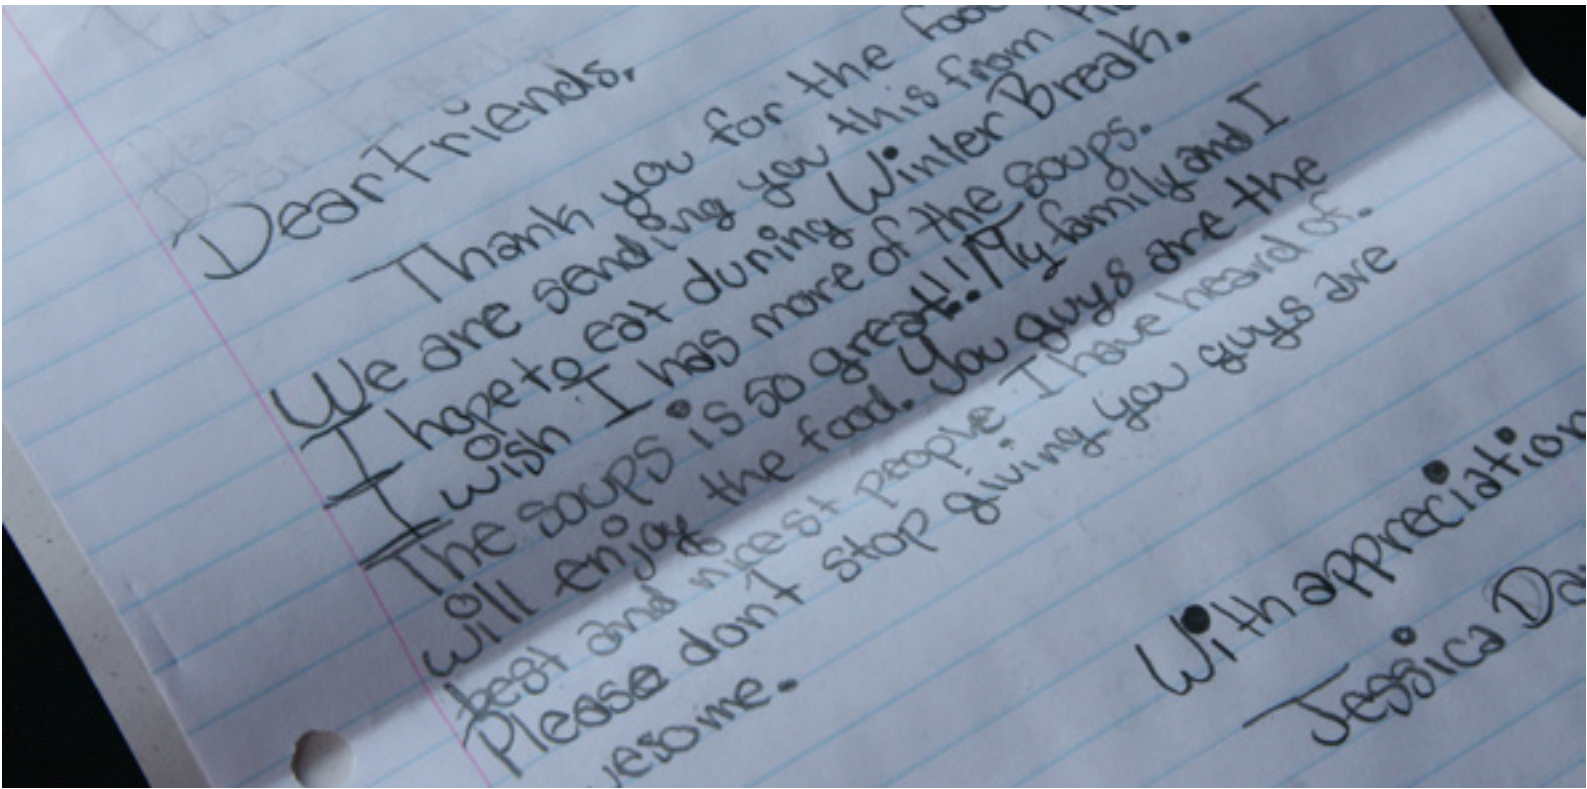 Dear Friends,
Thank you for the foo
We are sending you this from
I hope to eat during Winter Break.
I wish I has more of the soups.
The soups is so great!! My family and I
will enjoy the food. You guys are the
best and nicest people I have heard of.
Please don't stop giving you guys are
wesome.
With appreciation
Jessica Da